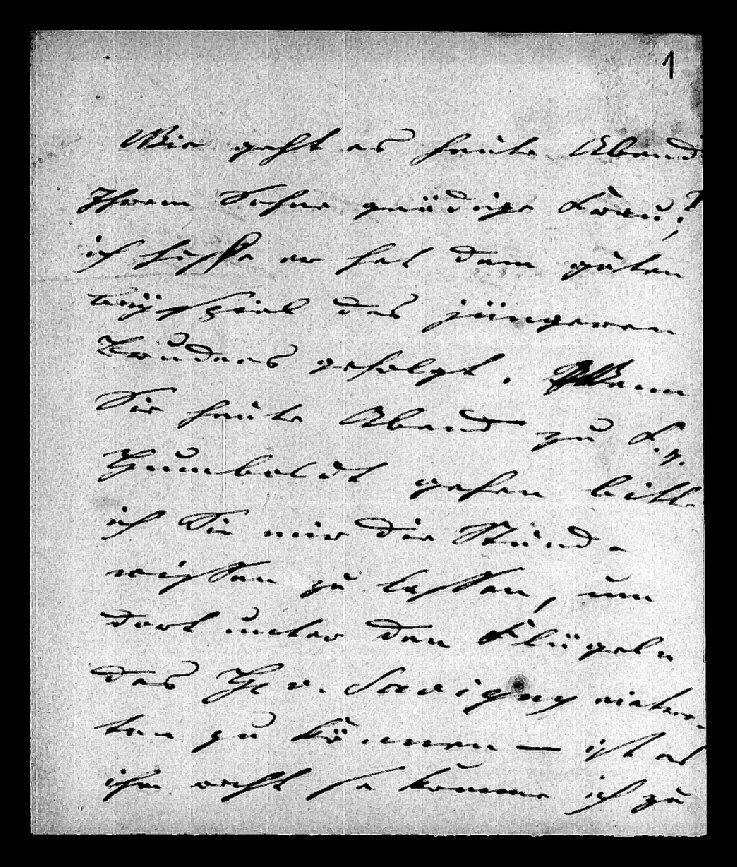 1
Wie geht es heute Abend
Ihrem Sohne gnädige Frau?
ich hoffe er hat dem guten
Beyspiel des jüngeren
Bruders gefolgt. Wenn
Sie heute Abend zu F. v.
Humboldt gehen bitte
ich Sie mir die Stunde
wissen zu lassen, um
dort unter den Flügeln
des H. v. Savigny eintre-
ten zu können — ist es
ihm recht so komme ich zu